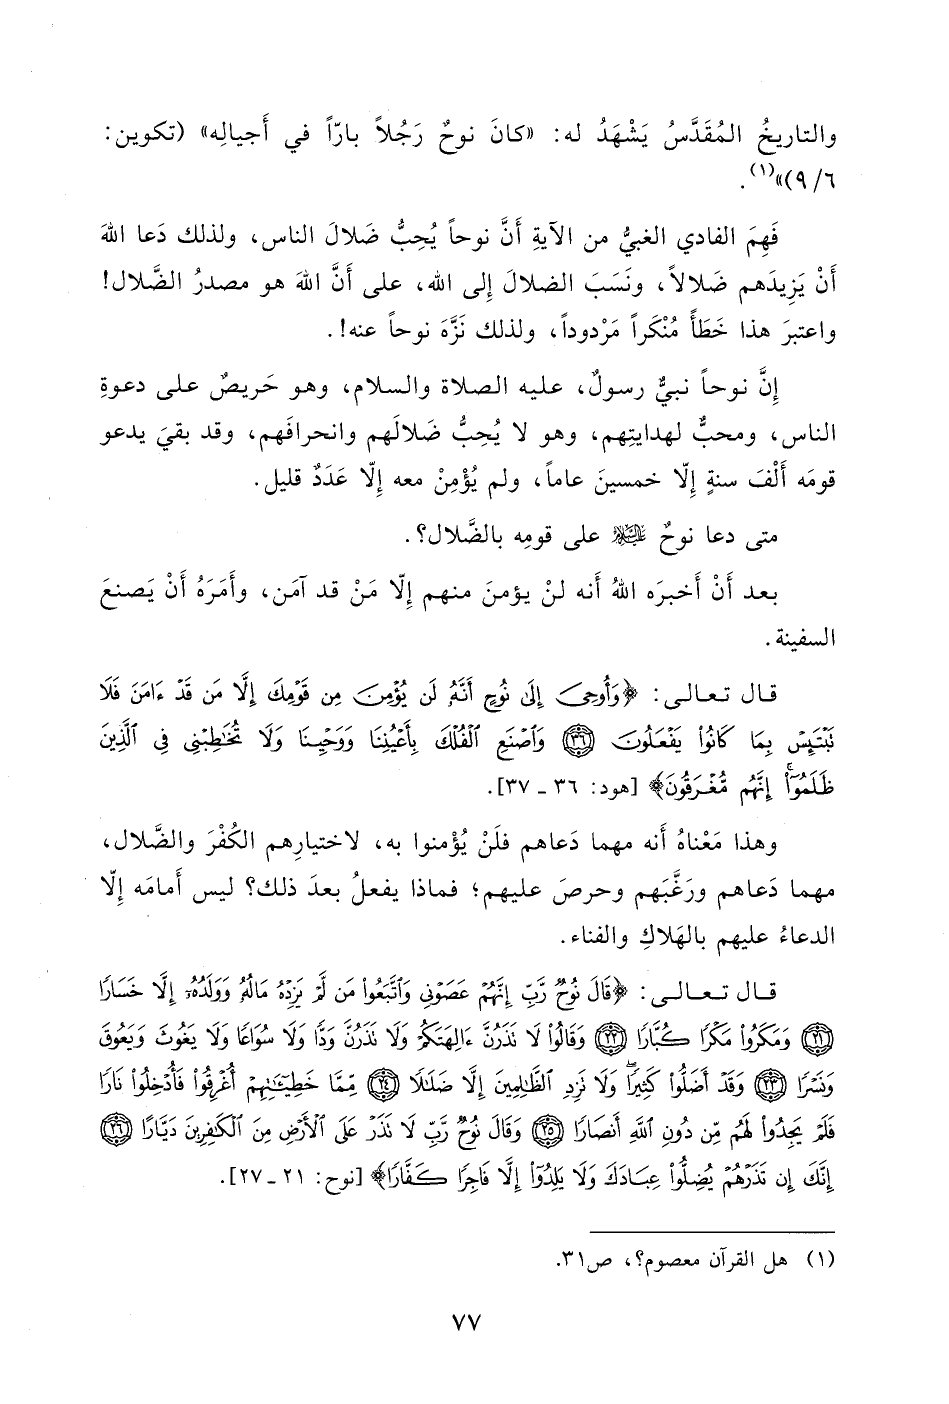 والتاريخُ المُقَدَّسُ يَشْهَدُ له: «كانَ نوحٌ رَجُلاً بارّاً في أَجيالِه» (تكوين:
٩/٦)»(١).
فَهِمَ الفادي الغبيُّ من الآيةِ أَنَّ نوحاً يُحِبُّ ضَلالَ الناس، ولذلك دَعا اللهَ
أَنْ يَزيدَهم ضَلالاً، ونَسَبَ الضلالَ إِلى الله، على أَنَّ اللهَ هو مصدرُ الضَّلال!
واعتبرَ هذا خَطَأً مُنْكَراً مَرْدوداً، ولذلك نَزَّهَ نوحاً عنه!.
إِنَّ نوحاً نبيٌّ رسولٌ، عليه الصلاة والسلام، وهو حَريصٌ على دعوةِ
الناس، ومحبٌّ لهدايتِهم، وهو لا يُحِبُّ ضَلالَهم وانحرافَهم، وقد بقيَ يدعو
قومَه أَلْفَ سنةٍ إِلّا خمسينَ عاماً، ولم يُؤْمِنْ معه إِلّا عَدَدٌ قليل.
متى دعا نوحٌ عليه السلام على قومِه بالضَّلال؟.
بعد أَنْ أَخبرَه اللهُ أَنه لنْ يؤمنَ منهم إِلّا مَنْ قد آمَن، وأَمَرَهُ أَنْ يَصنعَ
السفينة.
قال تعالى: ﴿وَأُوحِىَ إِلَىٰ نُوحٍ أَنَّهُۥ لَن يُؤْمِنَ مِن قَوْمِكَ إِلَّا مَن قَدْ ءَامَنَ فَلَا
تَبْتَئِسْ بِمَا كَانُوا۟ يَفْعَلُونَ ٣٦ وَٱصْنَعِ ٱلْفُلْكَ بِأَعْيُنِنَا وَوَحْيِنَا وَلَا تُخَٰطِبْنِى فِى ٱلَّذِينَ
ظَلَمُوٓا۟ ۚ إِنَّهُم مُّغْرَقُونَ﴾ [هود: ٣٦ ـ ٣٧].
وهذا مَعْناهُ أَنه مهما دَعاهم فلَنْ يُؤْمنوا به، لاختيارِهم الكُفْرَ والضَّلال،
مهما دَعاهم ورَغَّبَهم وحرصَ عليهم؛ فماذا يفعلُ بعدَ ذلك؟ ليس أَمامَه إِلّا
الدعاءُ عليهم بالهَلاكِ والفناء.
قال تعالى: ﴿قَالَ نُوحٌ رَّبِّ إِنَّهُمْ عَصَوْنِى وَٱتَّبَعُوا۟ مَن لَّمْ يَزِدْهُ مَالُهُۥ وَوَلَدُهُۥٓ إِلَّا خَسَارًا
٢١ وَمَكَرُوا۟ مَكْرًا كُبَّارًا ٢٢ وَقَالُوا۟ لَا تَذَرُنَّ ءَالِهَتَكُمْ وَلَا تَذَرُنَّ وَدًّا وَلَا سُوَاعًا وَلَا يَغُوثَ وَيَعُوقَ
وَنَسْرًا ٢٣ وَقَدْ أَضَلُّوا۟ كَثِيرًا ۖ وَلَا تَزِدِ ٱلظَّٰلِمِينَ إِلَّا ضَلَٰلًا ٢٤ مِّمَّا خَطِيٓـَٰٔتِهِمْ أُغْرِقُوا۟ فَأُدْخِلُوا۟ نَارًا
فَلَمْ يَجِدُوا۟ لَهُم مِّن دُونِ ٱللَّهِ أَنصَارًا ٢٥ وَقَالَ نُوحٌ رَّبِّ لَا تَذَرْ عَلَى ٱلْأَرْضِ مِنَ ٱلْكَٰفِرِينَ دَيَّارًا ٢٦
إِنَّكَ إِن تَذَرْهُمْ يُضِلُّوا۟ عِبَادَكَ وَلَا يَلِدُوٓا۟ إِلَّا فَاجِرًا كَفَّارًا﴾ [نوح: ٢١ ـ ٢٧].
(١) هل القرآن معصوم؟، ص٣١.
٧٧